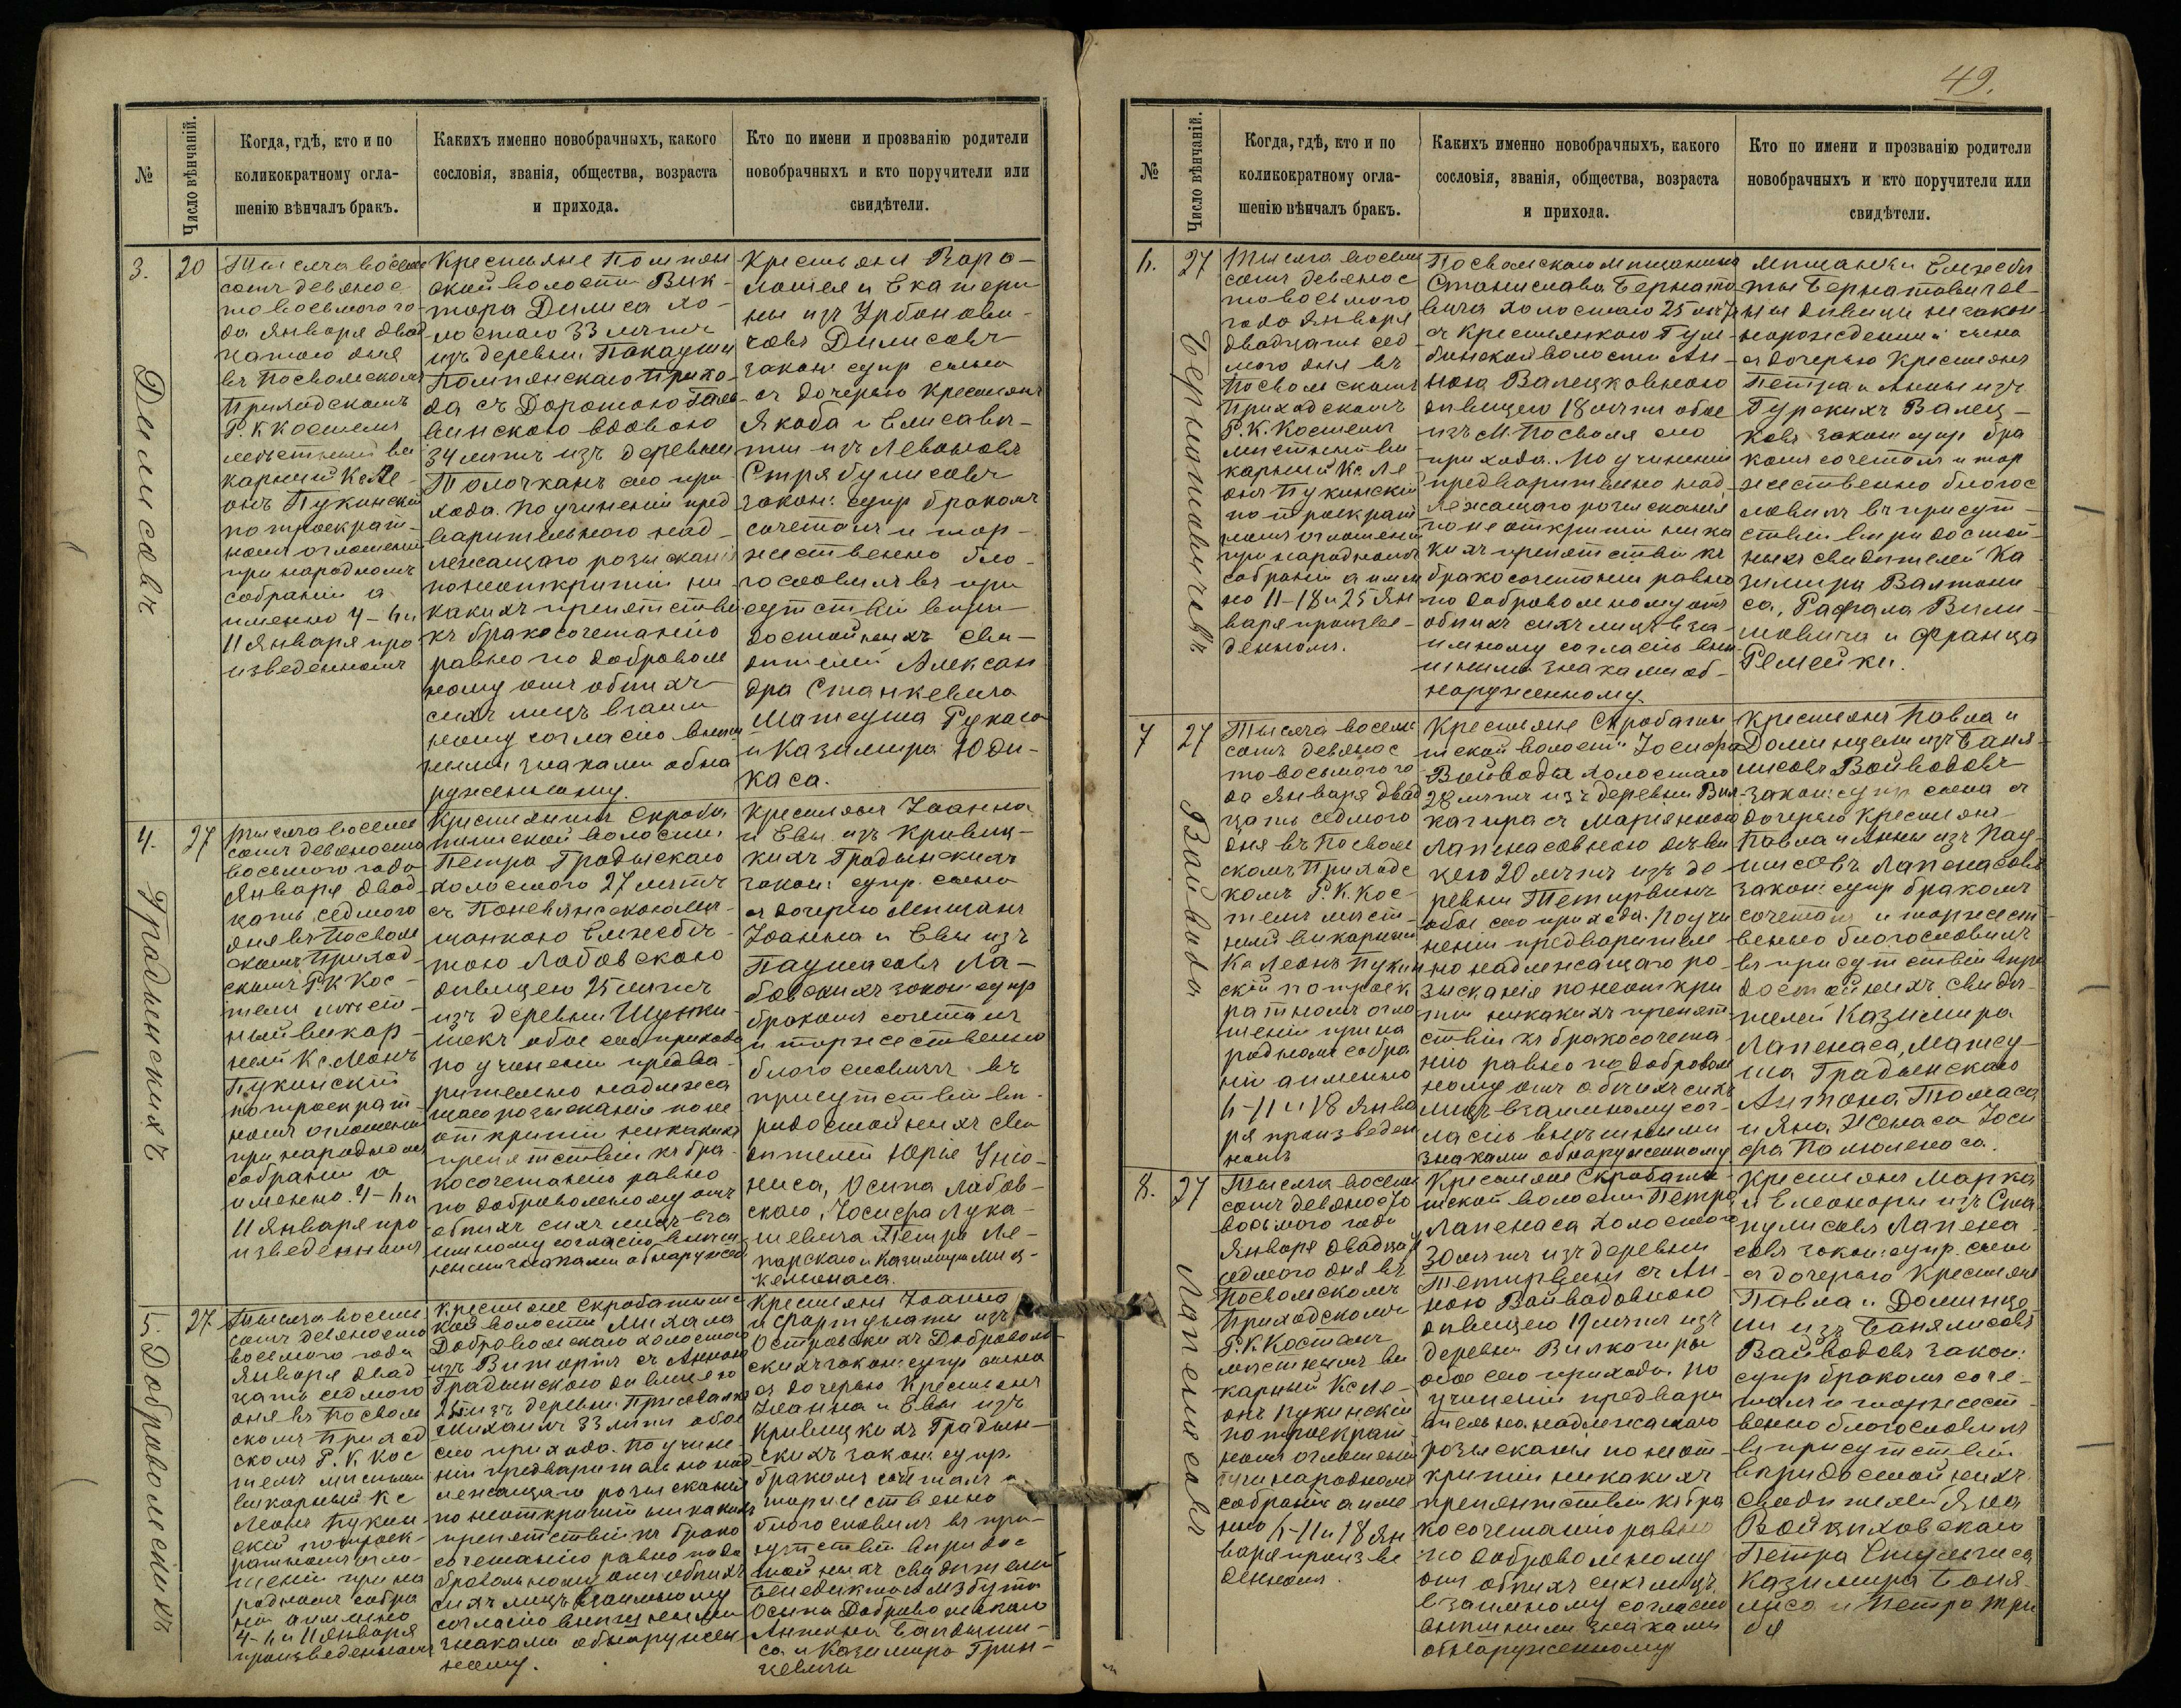 49.
№
Число вѣнчаній.
Когда, гдѣ, кто и по
коликократному огла-
шенію вѣнчалъ бракъ.
Каких именно новобрачныхъ, какого
сословія, званія, общества, возраста
и прихода.
Кто по имени и прозванію родители
новобрачныхъ и кто поручители или
свидѣтели.
3.
20
Дилисовъ
Тысяча восемь
сотъ девянос
то восьмого го-
да Января двад
цатаго дня
въ Посвольскомъ
Приходскомъ
Р. К Костелѣ
мѣстный ви
карный Кс Ле-
онъ Пукинскій
по троекрат-
номъ оглашеніи
при народномъ
собраніи а
именно 4-6 и
11 Января про
изведенномъ
Крестьяне Помпян
ской волости Вик-
тора Дилиса хо-
лостаго 33 лѣтъ
изъ деревни
Помпянскаго прихо-
да съ Доротою
вдовою
34 лѣтъ изъ деревни
Толочканъ сего при
хода. По учиненіи пред
варительнаго над-
лежащаго розысканія
по неоткрытіи ни
какихъ препятствій
къ бракосочетанію
равно по доброволь
ному отъ обѣихъ
сихъ лицъ взаим
ному согласію внѣш
ними знаками обна
руженному.
Крестьянъ
и Екатери
ны изъ Урбонови-
човъ Дилисовъ
закон: супр сына
съ дочерью Крестьянъ
Якоба и Елисаве-
ты изъ Левоновъ
Стрябулисовъ
закон: супр бракомъ
сочеталъ и тор-
жественно бла-
гословилъ въ при
сутствіи вѣри-
достойныхъ сви-
дѣтелей Алексан
дра Станкевича
Матеуша
и Казимира Юди-
каса.
4.
27
Градынскихъ
Тысяча восемь
сотъ девяносто
восьмого года
Января двад-
цать седмого
дня въ Посволь
скомъ Приход-
скомъ Р К Кос-
телѣ мѣст-
ный викар-
ный Кс. Леонъ
Пукинскій
по троекрат-
номъ оглашеніи
при народномъ
собраніи а
именно. 4-6 и
11 Января про
изведенномъ
Крестьянина Скробо
тишской волости
Петра Градынскаго
холостого 27 лѣтъ
съ Поневѣжскою мѣ-
щанкою Елжбѣ-
тою Лабовскою
дѣвицею 25 лѣтъ
изъ деревни
обое сего прихода
по учиненіи предва-
рительно надлежа
щаго розысканія по не
открытіи никакихъ
препятствій къ бра-
косочетанію равно
по добровольному отъ
обѣихъ сихъ лицъ вза
имному согласію внѣш
ними знаками обнаружен
Крестьянъ Іоанна
и Евы изъ Кривиц-
кихъ Градынскихъ
закон: супр. сына
съ дочерью Мѣщанъ
Іоанна и Евы изъ
Паушасовъ Ла-
бовскихъ закон: супр
бракомъ сочеталъ
и торжественно
благословилъ въ
присутствіи вѣ-
ридостойныхъ сви
дѣтелей Юрія Уню-
наса, Осипа Лабов-
скаго, Іосифа Лука-
шевича Петра Ле-
парскаго и Казимира Миц-
келюнаса.
5.
27
Добровольскихъ
Тысяча восемь
сотъ девяносто
восьмого года
Января двад
цать седмого
дня въ Посволь
скомъ Приход
скомъ Р. К. Кос
телѣ мѣстный
викарный Кс
Леонъ Пукин
скій по троек-
ратномъ огла-
шеніи при на
родномъ собра
ніи а именно
4-6 и 11 Января
произведенномъ
Крестьяне Скроботишс
кой волости Михала
Добровольскаго холостаго
изъ съ Анною
Градынскою дѣвицею
изъ деревни
Михаилъ 33 лѣтъ обое
сего прихода. По учине-
ніи предварительно над
лежащаго розысканія
по неоткрытіи никакихъ
препятствій къ брако
сочетанію равно по до
бровольному отъ обѣихъ
сихъ лицъ взаимному
согласію внѣшними
знаками обнаружен
ному.
Крестьянъ Іоанна
и Фортунаты изъ
Островскихъ Доброволь
скихъ закон: супр сына
съ дочерью Крестьянъ
Іоанна и Евы изъ
Кривицкихъ Градын-
скихъ закон: супр.
бракомъ сочеталъ и
торжественно
благословилъ въ при-
сутствіи вѣридос
тойныхъ свидѣтелей
Бенедикта
Осипа Добровольскаго
Антона
са и Казимира Грин-
цевича
№
Число вѣнчаній.
Когда, гдѣ, кто и по
коликократному огла-
шенію вѣнчалъ бракъ.
Каких именно новобрачныхъ, какого
сословія, званія, общества, возраста
и прихода.
Кто по имени и прозванію родители
новобрачныхъ и кто поручители или
свидѣтели.
6.
27
Бернатовичовъ
Тысяча восемь
сотъ девянос
то восьмого
года Января
двадцать сед-
мого дня въ
Посвольскомъ
Приходскомъ
Р. К. Костелѣ
мѣстный ви
карный Кс. Ле
онъ Пукинскій
по троекрат
номъ оглашеніи
при народномъ
собраніи а имен
но 11-18 и 25 Ян
варя произве-
денномъ.
Посвольскаго мѣщанина
Станислава Бернато
вича холостаго 25 лѣтъ
съ крестьянкою
волости Ан-
ною Валецковною
дѣвицею 18 лѣтъ обое
изъ М. Посволя сего
прихода. По учиненіи
предварительно над-
лежащаго розысканія
по неоткрытіи ника
кихъ препятствій къ
бракосочетанію равно
по добровольному отъ
обѣихъ сихъ лицъ вза-
имному согласію внѣ
шними знаками об-
наруженному.
Мѣщанки Елжбѣ
ты Бернатовичов-
ны дѣвицы незакон-
норожденный сына
съ дочерью Крестьянъ
Петра и Анны изъ
Бурскихъ Валец-
ковъ закон: супр бра
комъ сочеталъ и тор
жественно благос
ловилъ въ присут-
ствіи вѣридостой-
ныхъ свидѣтелей Ка
зимира
са, Рафала
и Франца
Ремейки.
7
27
Вайвода
Тысяча восемь
сотъ девянос
то восьмого го
да Января двад
цать седмого
дня въ Посволь
скомъ Приходс
комъ Р. К. Кос-
телѣ мѣст-
ный викарный
Кс Леонъ Пукин
скій по троек
ратномъ огла
шеніи при на
родномъ собра
ніи а именно
6-11 и 18 Янва
ря произведен
номъ
Крестьяне Скроботи
шской волости Іосифа
Войводы холостаго
28 лѣтъ изъ деревни Вил
кагира съ Маріянною
Лапенасовною дѣви
цею 20 лѣтъ изъ де-
ревни Тетирвинъ
обое сего прихода. По учи
неніи предваритель
но надлежащаго ро-
зысканія по неоткры
тіи никакихъ препят-
ствій къ бракосочета-
нію равно по доброволь
ному отъ обѣихъ сихъ
лицъ взаимному сог-
ласію внѣшними
знаками обнаруженному
Крестьянъ Павла и
Доминцели изъ Баня-
лисовъ Войводовъ
закон: супр сына съ
дочерью Крестьянъ
Павла и Анны изъ
Лапенасовъ
закон: супр бракомъ
сочеталъ и торжест
венно благословилъ
въ присутствіи вѣри
достойныхъ свидѣ-
телей Казимира
Лапенаса, Матеу-
ша Градынскаго
Антона Томаса
и Яна Жемаса Іоси
фа
8.
27
Лапенасовъ
Тысяча восемь
сотъ девяносто
восьмого года
Января двадцать
седмого дня въ
Посвольскомъ
Приходскомъ
Р. К. Костелѣ
мѣстнымъ ви
карный Кс Ле-
онъ Пукинскій
по троекрат-
номъ оглашеніи
при народномъ
собраніи а име
нно 6-11 и 18 Ян
варя произве
денномъ.
Крестьяне Скробати
шской волости Петра
Лапенаса холостого
30 лѣтъ изъ деревни
Тетирвины съ Ан-
ною Вайводовною
дѣвицею 19 лѣтъ изъ
деревни Вилкогиры
обое сего прихода. По
учиненіи предвари
тельно надлежащаго
розысканія по неот-
крытіи никакихъ
препятствій къ бра
косочетанію равно
по добровольному
отъ обѣихъ сихъ лицъ
взаимному согласію
внѣшними знаками
обнаруженному
Крестьянъ Марка
и Елеоноры изъ Ста
пулисовъ Лапена
совъ закон: супр. сына
съ дочерью Крестьянъ
Павла и Доминце
ли изъ Банялисовъ
Вайводовъ закон:
супр бракомъ соче-
талъ и торжест
венно благословилъ
въ присутствіи
вѣридостойныхъ
свидѣтелей Яна
Войцѣховскаго
Петра
Казимира Боня-
лиса и Петра Три
бя